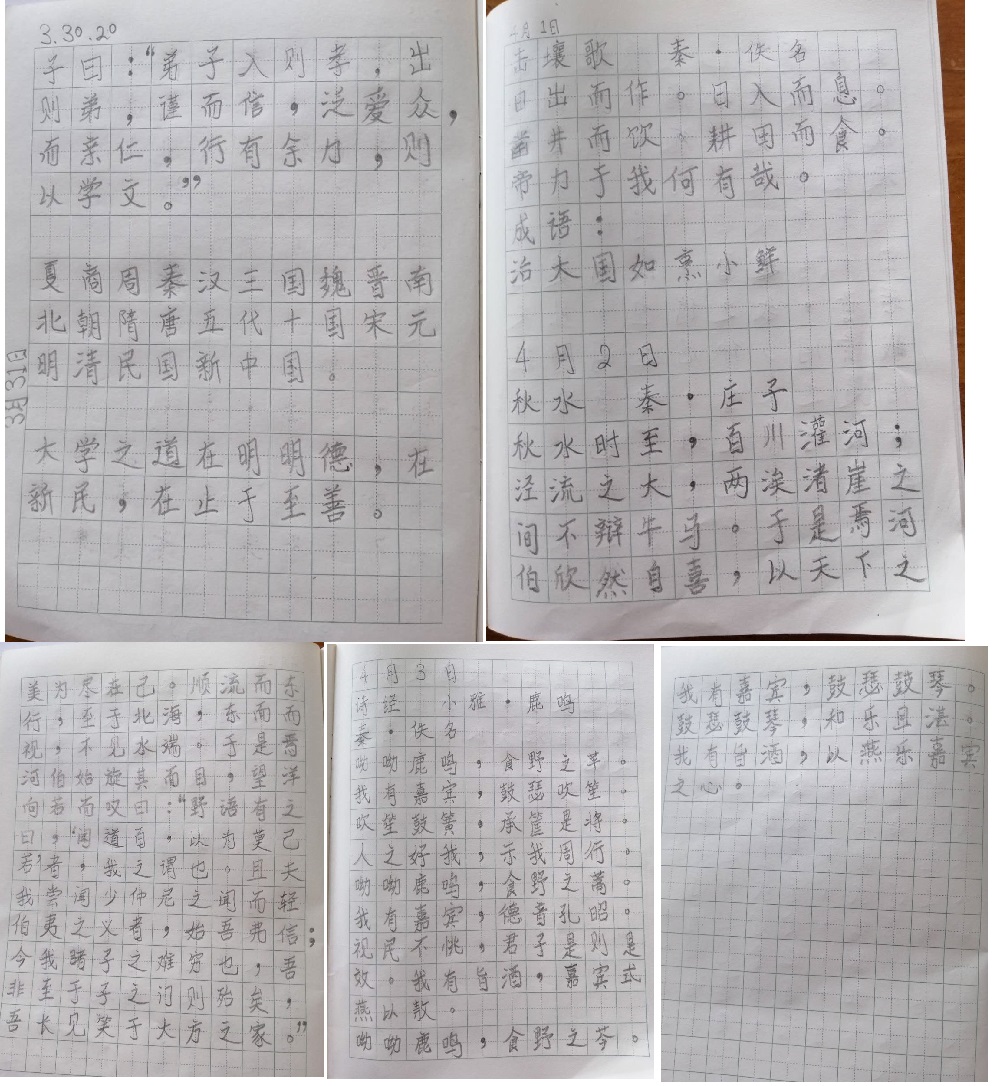 3.30.20
子曰："弟子入则孝，出
则弟，谨而信，泛爱众，
而亲仁，行有余力，则
以学文。"
夏商周秦汉三国魏晋南
北朝隋唐五代十国宋元
明清民国新中国。
3月31日
大学之道在明明德，在
新民，在止于至善。
月1日
击壤歌 秦·佚名
日出而作。日入而息。
凿井而饮。耕田而食。
帝力于我何有哉。
成语：
治大国如烹小鲜
4月2日
秋水 秦·庄子
秋水时至，百川灌河；
泾流之大，两涘渚崖之
间不辩牛马。于是焉河
伯欣然自喜，以天下之
美为尽在己。顺流而东
行，至于北海，东面而
视，不见水端。于是焉
河伯始旋其面目，望洋
向若而叹曰："野语有之
曰，'闻道百，以为莫己
若'者，我之谓也。且夫
我尝闻少仲尼之闻而轻
伯夷之义者，始吾弗信；
今我睹子之难穷也，吾
非至于子之门则殆矣，
吾长见笑于大方之家。"
4月3日
诗经 小雅·鹿鸣
秦·佚名
呦呦鹿鸣，食野之苹。
我有嘉宾，鼓瑟吹笙。
吹笙鼓簧，承筐是将。
人之好我，示我周行。
呦呦鹿鸣，食野之蒿。
我有嘉宾，德音孔昭。
视民不恌，君子是则是
效。我有旨酒，嘉宾式
燕以敖。
呦呦鹿鸣，食野之芩。
我有嘉宾，鼓瑟鼓琴。
鼓瑟鼓琴，和乐且湛。
我有旨酒，以燕乐嘉宾
之心。